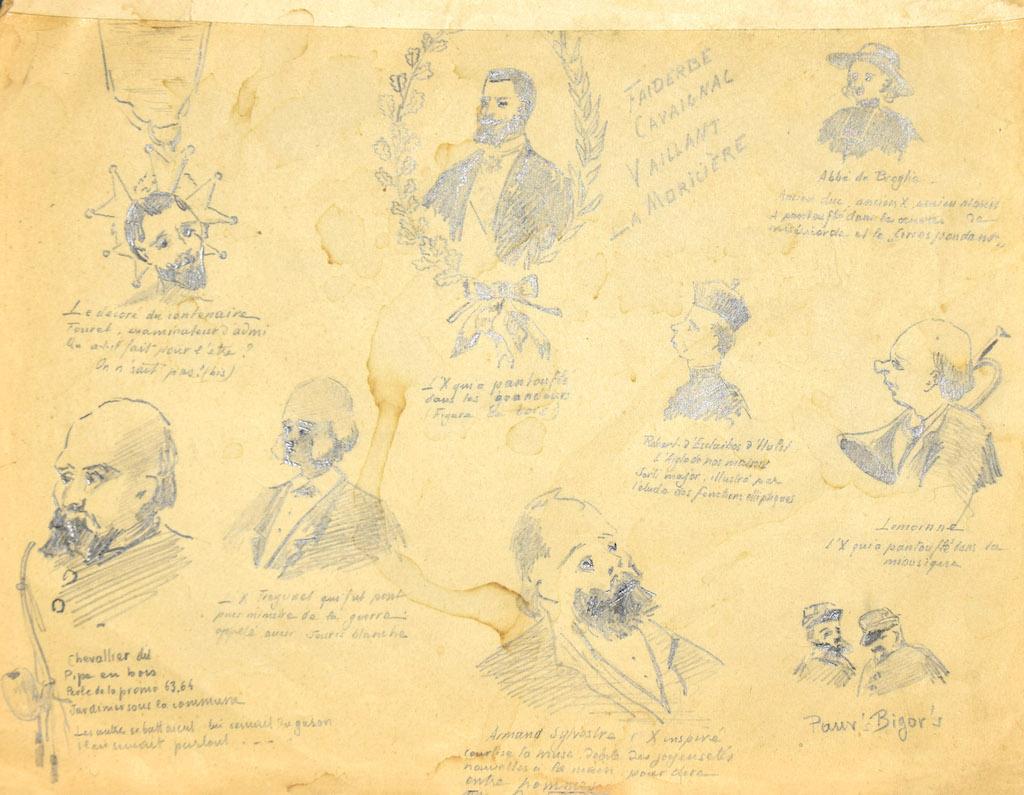 FAIDERBE
CAVAIGNAC
VAILLANT
LA MORICIÈRE
Abbé de Broglie
Ancien duc, ancien X, ancien
A pantouflé dans le de
miséricorde et le "Correspondant"
Le décoré du centenaire
Fouret, examinateur d'admi
Qu'a-t-il fait pour l'être ?
On n'sait pas ! (bis)
L'X qui a pantouflé
dans les grandeurs
(Figure de bord)
Robert d'Esclaibes d'Hulst
L'Aiglo de nos
Sorti major, illustré par
l'étude des fonctions elliptiques
Lemoinne
L'X qui a pantouflé dans la
musique
L'X Freycinet qui fut pont
puis ministre de la guerre
appelé aussi Souris blanche
Chevallier dit
Pipe en bois
de la promo 63,64
Jardinier sous la commune
Les autres se battaient, lui semait du gazon
Il en mettait partout ....
Armand Sylvestre l'X inspiré
courtise la muse des joyeusetés
nouvelles à la main pour dire
entre hommes
Pauv's Bigor's